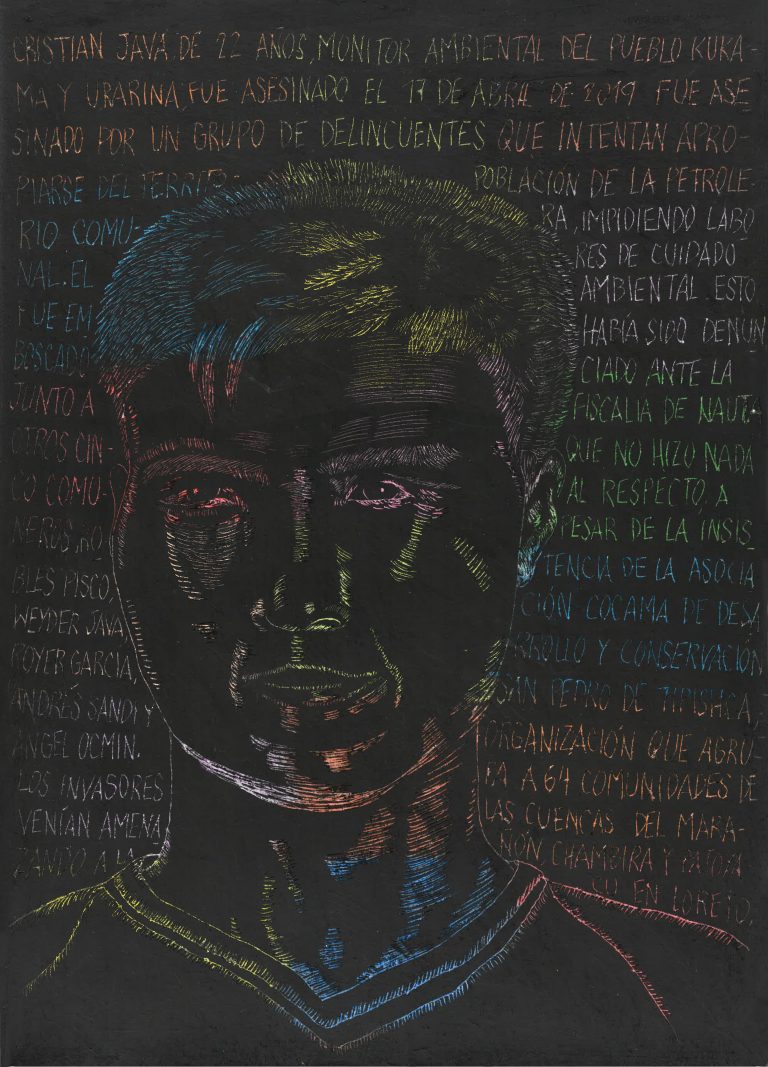 CRISTIAN JAVA DE 22 AÑOS, MONITOR AMBIENTAL DEL PUEBLO KUKA-
MA Y URARINA, FUE ASESINADO EL 17 DE ABRIL DE 2019 FUE ASE
SINADO POR UN GRUPO DE DELINCUENTES QUE INTENTAN APRO-
PIARSE DEL TERRITO-
RIO COMU-
NAL. EL
FUE EM
BOSCADO
JUNTO A
OTROS CIN-
CO COMU-
NEROS, NO
BLES PISCO,
WEYDER JAVA,
ROYER GARCIA,
ANDRÉS SANDI Y
ANGEL OCMIN.
LOS INVASORES
VENÍAN AMENA
ZANDO A LA
POBLACIÓN DE LA PETROLE-
RA, IMPIDIENDO LABO
RES DE CUIDADO
AMBIENTAL ESTO
HABÍA SIDO DENUN
CIADO ANTE LA
FISCALIA DE NAUTA
QUE NO HIZO NADA
AL RESPECTO, A
PESAR DE LA INSIS
TENCIA DE LA ASOCIA
CIÓN COCAMA DE DESA
RROLLO Y CONSERVACIÓN
SAN PEDRO DE TIPISHCA,
ORGANIZACIÓN QUE AGRU-
PA A 64 COMUNIDADES DE
LAS CUENCAS DEL MARA-
ÑÓN CHAMBIRA Y PATOYA
CU EN LORETO.